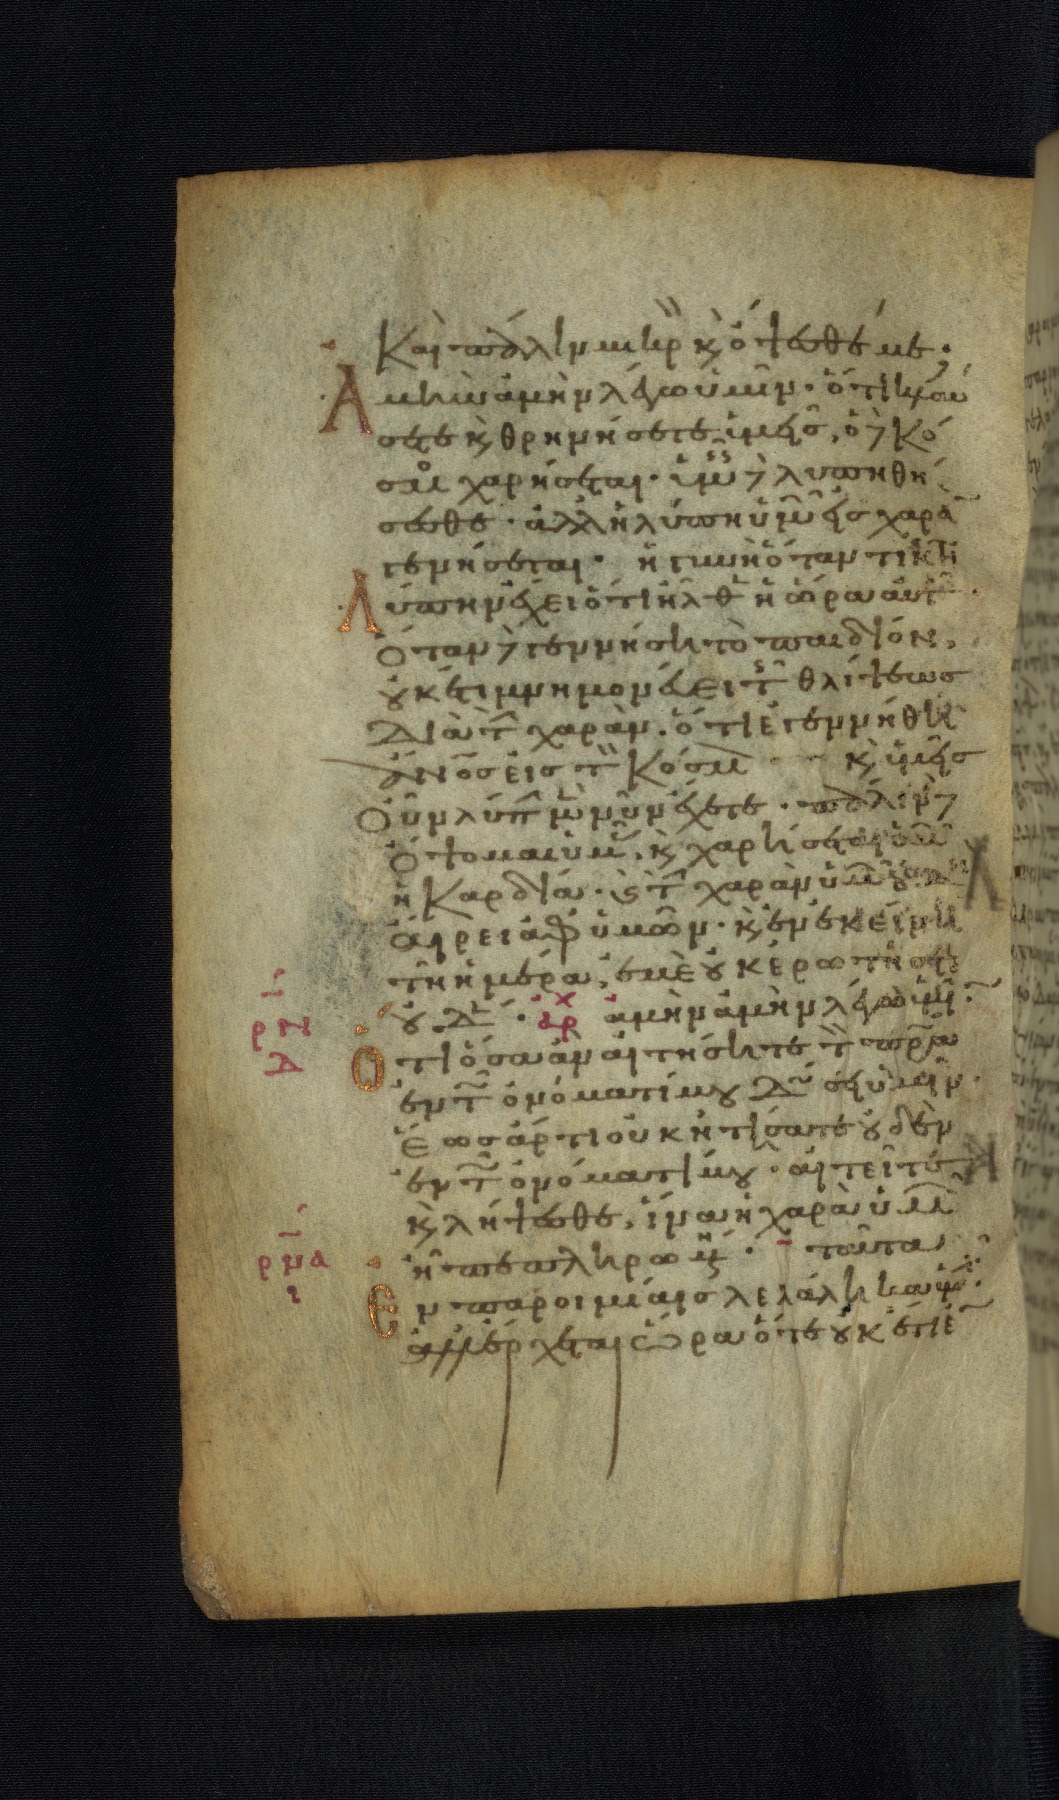 Καὶ πάλιν μικρὸν κ(αὶ) ὄψεσθέ με·
Ἀμὴν ἀμὴν λέγω ὑμῖν· ὅτι κλαύ
σετε κ(αὶ) θρηνήσετε ὑμεῖς, ὁ δὲ κό
σμο χαρήσεται· ὑμεῖς δὲ λυπηθή
σεσθε· ἀλλ' ἡ λύπη ὑμῶν εἰς χαρὰ
γενήσεται· ἡ γυνὴ ὅταν τίκτῃ
λύπην ἔχει ὅτι ἦλθεν ἡ ὥρα αὐτῆς·
Ὅταν δὲ γεννήσῃ τὸ παιδίον,
οὐκέτι μνημονεύει τῆς θλίψεως
διὰ τὴν χαρὰν. ὅτι ἐγεννήθη
ἄνος εἰς τὸν κόσμο κ(αὶ) ὑμεῖς
οὖν λύπην μὲν νῦν ἔχετε· πάλιν δὲ
ὄψομαι ὑμᾶς, κ(αὶ) χαρήσεται ὑμῶν
ἡ καρδία· κ(αὶ) τὴν χαρὰν ὑμῶν οὐδεὶς
αἴρει ἀφ' ὑμῶν· κ(αὶ) ἐν ἐκείνῃ
τῇ ἡμέρα, ἐμὲ οὐκ ἐρωτήσετε
οὐδέν· ἀρχ ἀμὴν ἀμὴν λέγω ὑμῖν
ρν
δ
Ὅτι ὅσα ἂν αἰτήσητε τὸν πρα
ἐν τῷ ὀνόματί μου δώσει ὑμῖν·
Ἕως ἄρτι οὐκ ᾐτήσατε οὐδὲν
ἐν τῷ ὀνόματί μου· αἰτεῖτε
κ(αὶ) λήψεσθε, ἵνα ἡ χαρὰ ὑμῶν
ᾖ πεπληρωμένη· ταῦτα
ρνα
ι
Ἐν παροιμίαις λελάληκα ὑμῖν·
ἀλλ' ἔρχεται ὥρα ὅτε οὐκέτι ἐν